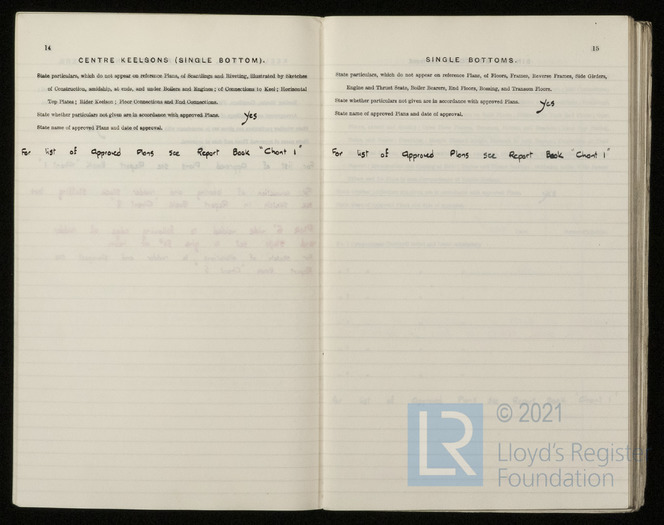 14
CENTRE KEELSONS (SINGLE BOTTOM).
State particulars, which do not appear on reference Plans, of Scantlings and Riveting, illustrated by Sketches
of Construction, amidship, at ends, and under Boilers and Engines; of Connections to Keel; Horizontal
Top Plates; Rider Keelson; Floor Connections and End Connections.
State whether particulars not given are in accordance with approved Plans. Yes
State name of approved Plans and date of approval.
For list of Approved Plans see Report Book "Chant 1"
15
SINGLE BOTTOMS.
State particulars, which do not appear on reference Plans, of Floors, Frames, Reverse Frames, Side Girders,
Engine and Thrust Seats, Boiler Bearers, End Floors, Bossing, and Transom Floors.
State whether particulars not given are in accordance with approved Plans. Yes
State name of approved Plans and date of approval.
For list of Approved Plans see Report Book "Chant 1"
LR
© 2021
Lloyd's Register
Foundation